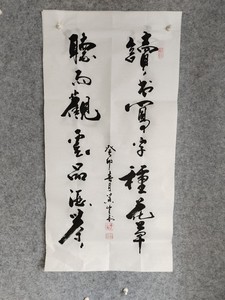 讀书寫字種花草
聽雨觀雲品酒茶
癸卯春月